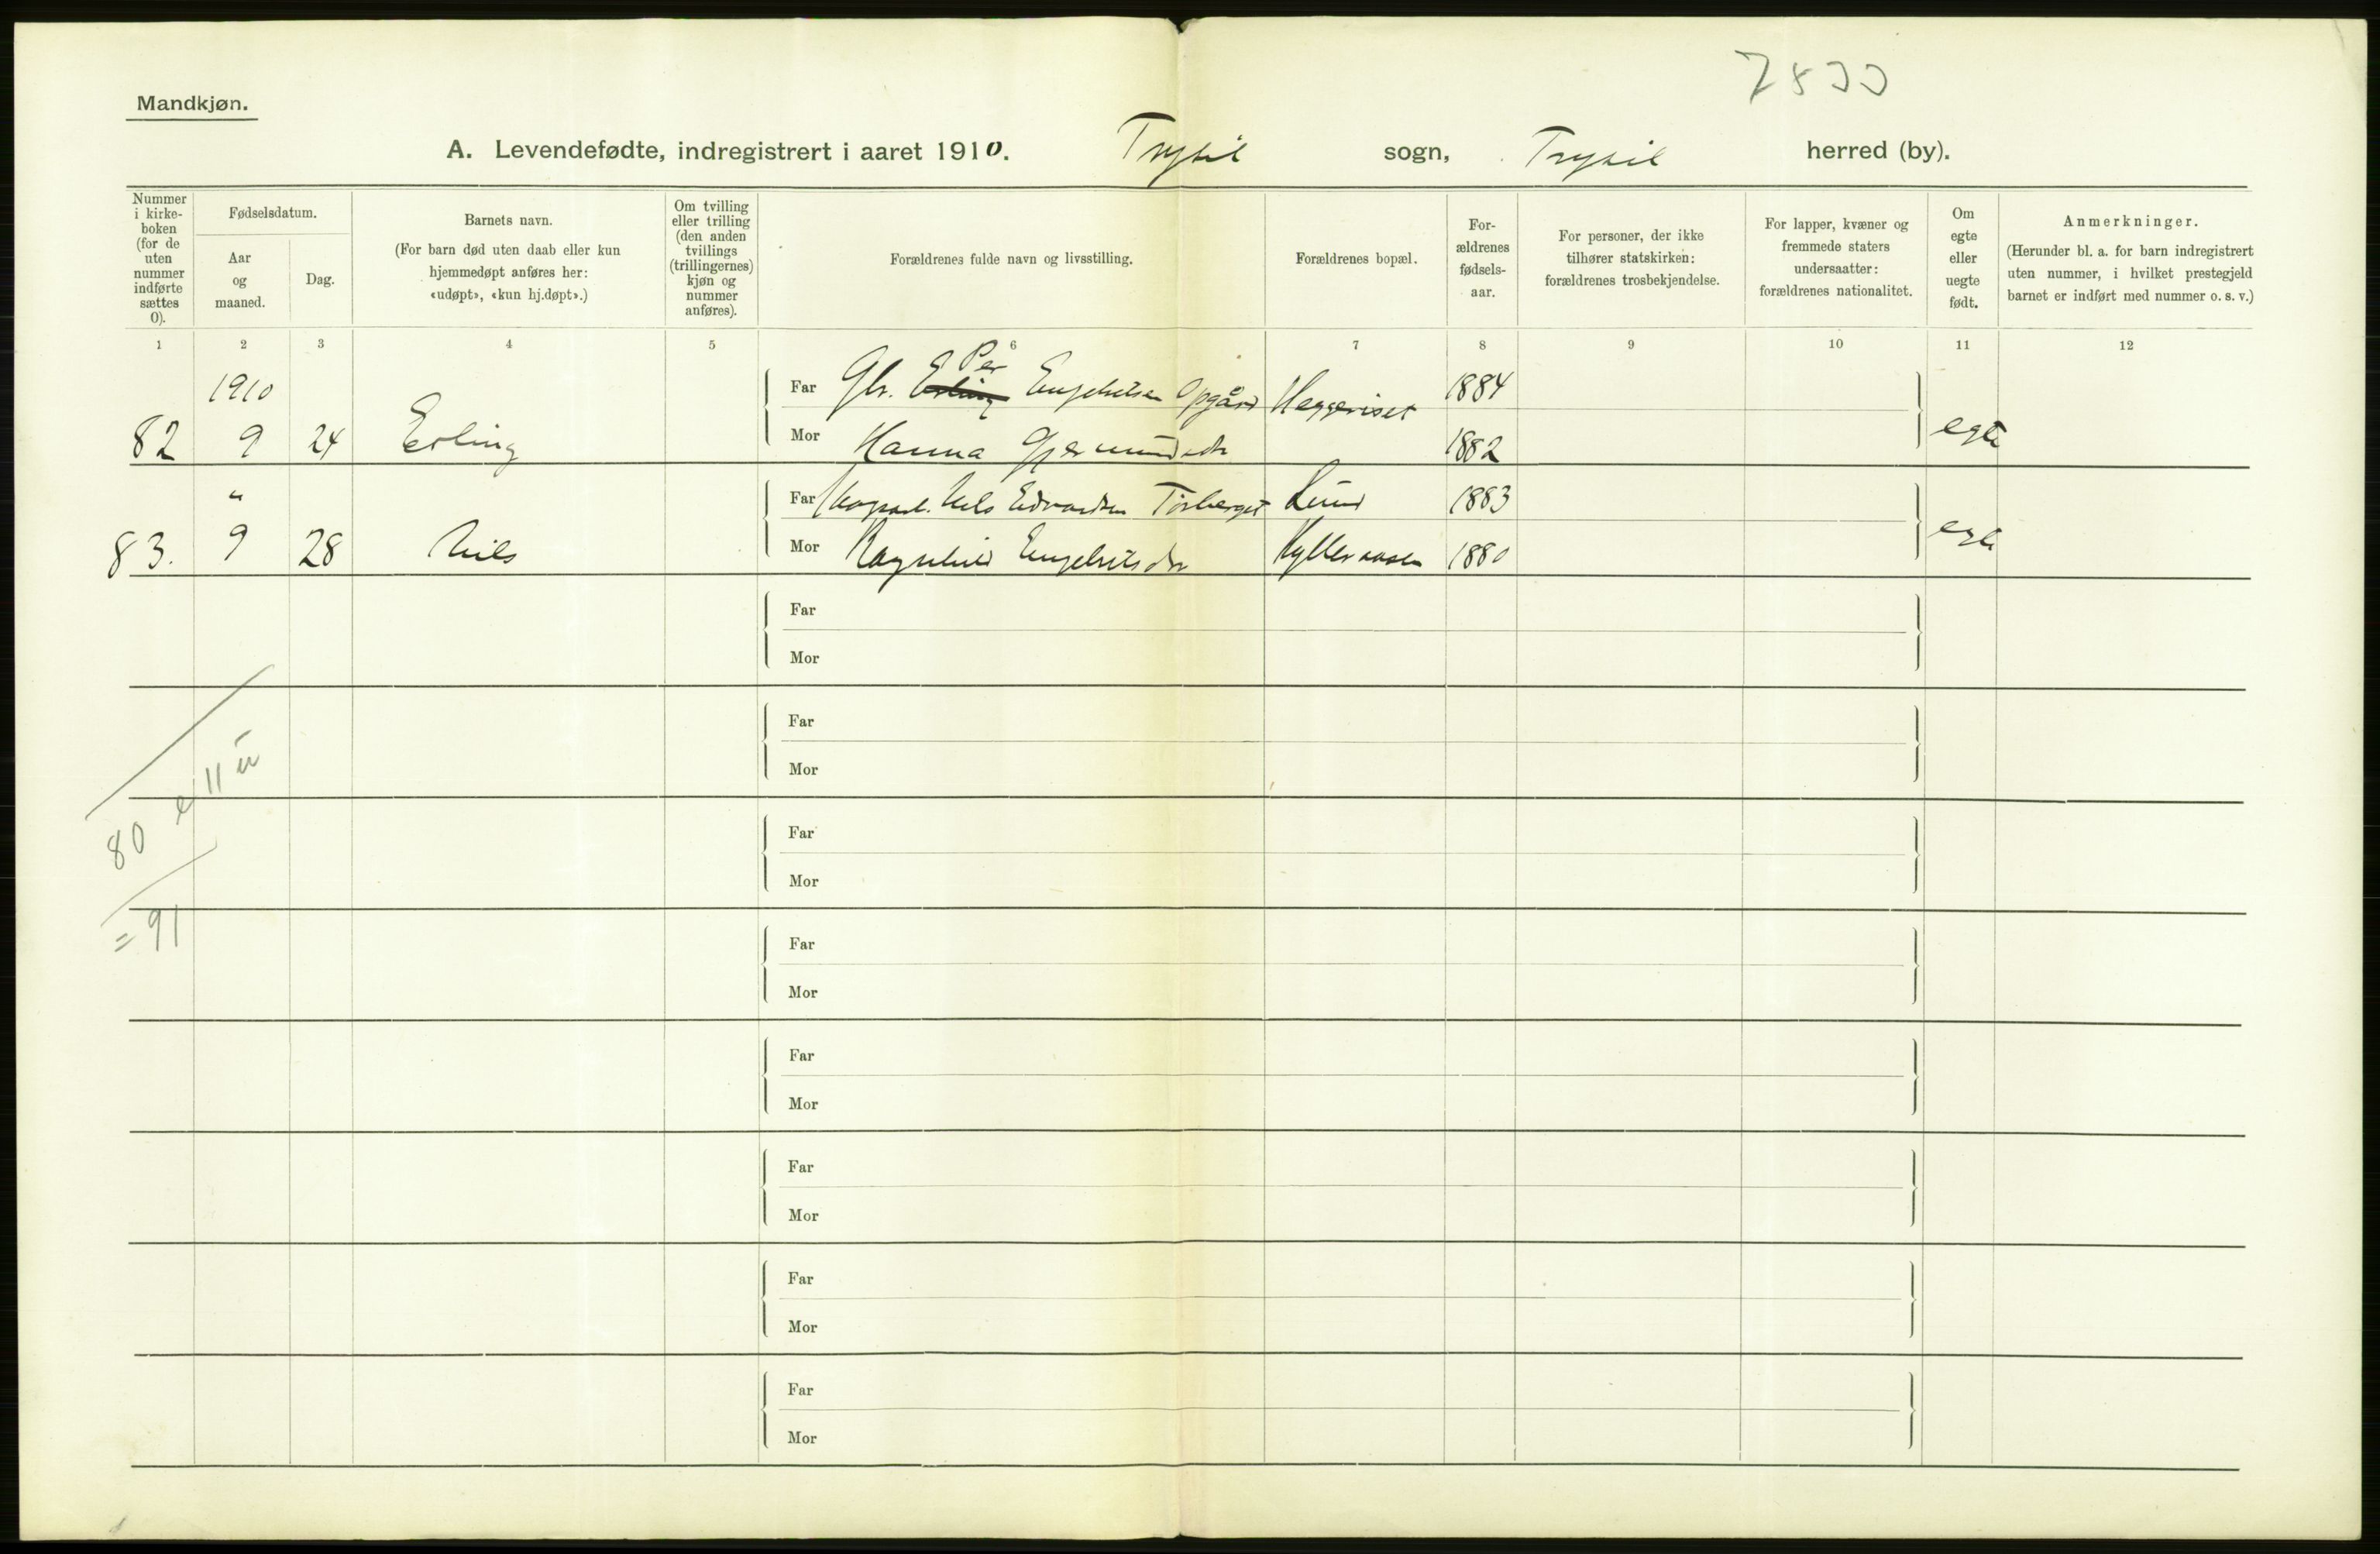 7833
Mandkjøn.
A. Levendefødte, indregistrert i aaret 1910. Trysil sogn, Trysil herred (by).
Nummer i kirke-boken (for de uten nummer indførte sættes 0).
Fødselsdatum.
Aar og maaned.
Dag.
Barnets navn.
(For barn død uten daab eller kun hjemmedøpt anføres her: «udøpt», «kun hj.døpt».)
Om tvilling eller trilling (den anden tvillings (trillingernes) kjøn og nummer anføres).
Forældrenes fulde navn og livsstilling.
Forældrenes bopæl.
For-ældrenes fødsels-aar.
For personer, der ikke tilhører statskirken: forældrenes trosbekjendelse.
For lapper, kvæner og fremmede staters undersaatter: forældrenes nationalitet.
Om egte eller uegte født.
Anmerkninger.
(Herunder bl. a. for barn indregistrert uten nummer, i hvilket prestegjeld barnet er indført med nummer o. s. v.)
1 2 3 4 5 6 7 8 9 10 11 12
1910
82 9 24 Erling
Far Gbr. Erling Per Engebretsen Opgård Heggeriset 1884
Mor Hanna Gjermundsdtr 1882
egte
"
83. 9 28 Nils
Far Nils Edvardsen Torberget Lund 1883
Mor Ragnhild Engebretsdtr 1880
egte
Far
Mor
Far
Mor
Far
Mor
Far
Mor
Far
Mor
Far
Mor
Far
Mor
Far
Mor
80 e 11 u
= 91